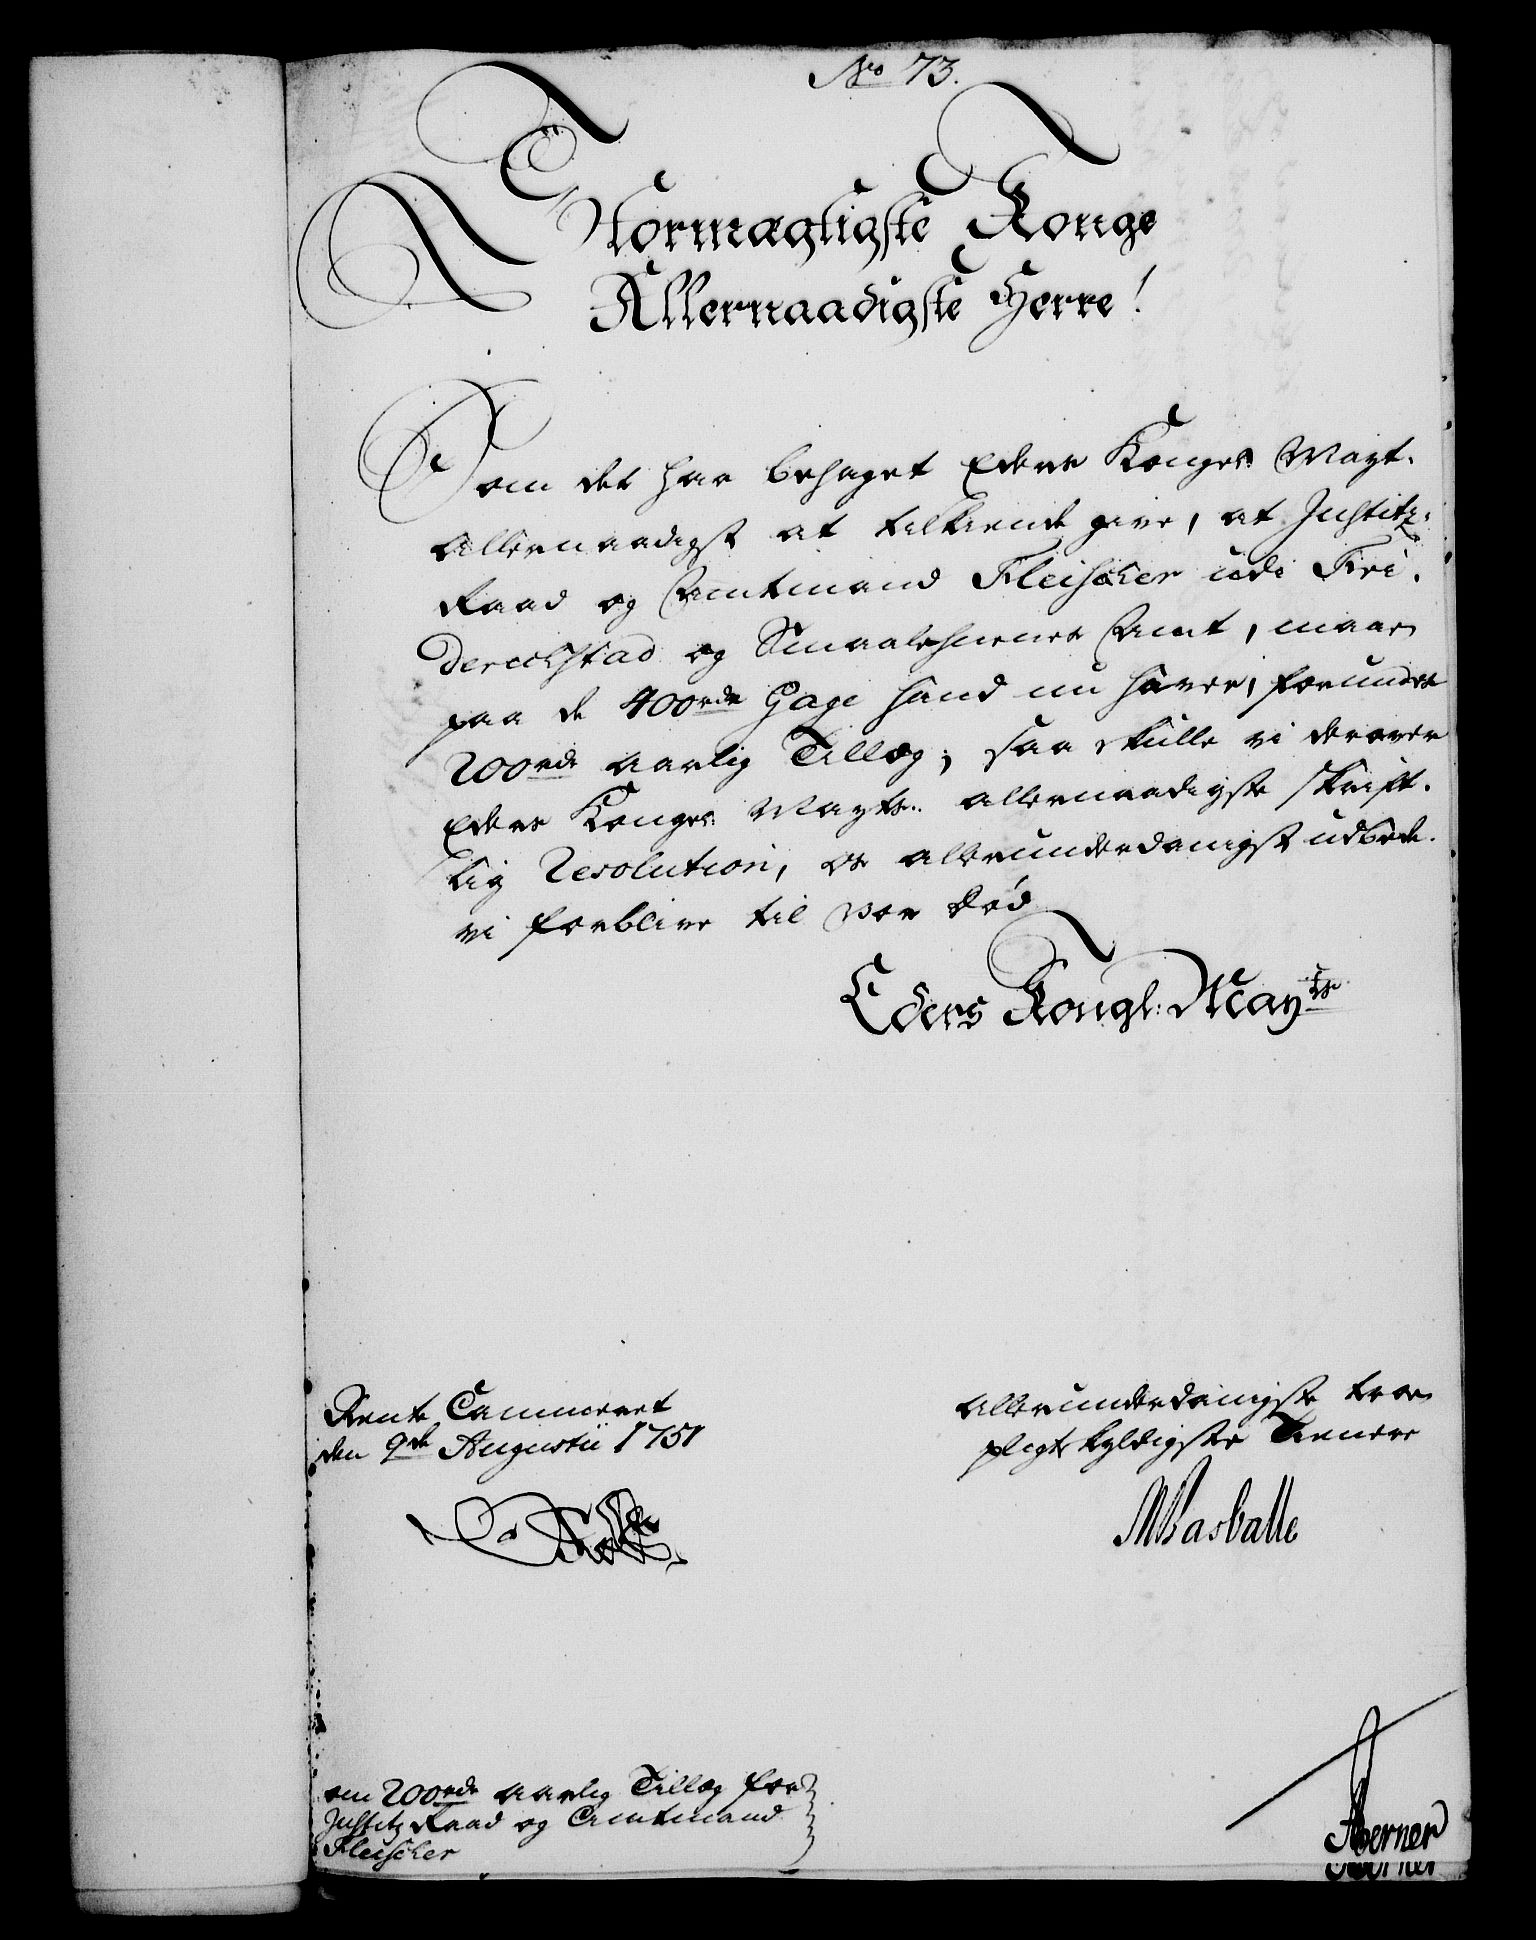 No 73.
Stormægtigste Konge
Allernaadigste Herre!
Som det har behaget Eders Konges Mayt.
allernaadigst at tilkiende give, at Justitz-
Raad og Amtmand Fleischer udi Fri-
derichstad og Smaalehnenes Amt, maae
paa de 400rdr Gage hand nu haver, forundes
200rdr aarlig Tillæg; saa skulle vi derover
Eders Konges Mayts allernaadigste skrift-
lig Resolution, os allerunderdanigst udbede.
vi forblive til vor Død
Eders Kongl: Mayts
Rente Cammeret
den 9de Augustii 1751
allerunderdanigste troe
pligtskyldigste Tienere
Basballe
om 200rdr aarlig Tillæg for
Justitz Raad og Amtmand
Fleischer